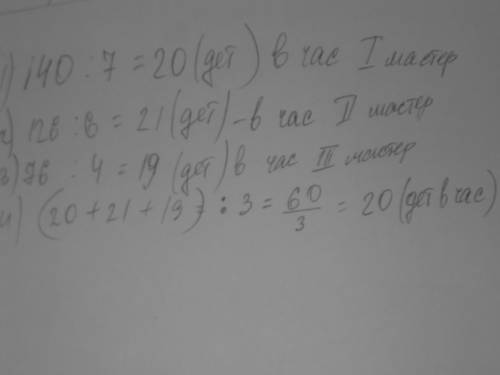 1) 140 : 7 = 20 (дет) в час I мастер
2) 126 : 6 = 21 (дет) - в час II мастер
3) 76 : 4 = 19 (дет) в час III мастер
4) (20 + 21 + 19) : 3 = 60/3 = 20 (дет в час)